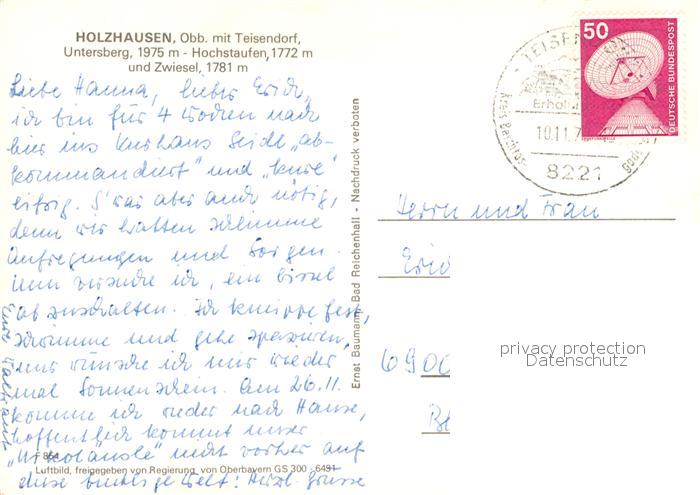 HOLZHAUSEN, Obb. mit Teisendorf,
Untersberg, 1975 m - Hochstaufen, 1772 m
und Zwiesel, 1781 m
Liebe Hanna, lieber Erich,
ich bin für 4 Wochen nach
hier ins Kurhaus Seidl „ab-
kommandiert" und „kure"
eifrig. S'war aber auch nötig,
denn wir hatten schlimme
Aufregungen und Sorgen.
Nun versuche ich, ein bissel
abzuschalten. Ich kneippe fest,
schwimme und gehe spazieren,
nur wünsche ich mir wieder
mal Sonnenschein. Am 26.11.
komme ich wieder nach Hause,
hoffentlich kommt unser
nicht vorher auf
diese bucklige Welt! Herzl. Grüsse
Eure Waltraut
F 864
Luftbild, freigegeben von Regierung von Oberbayern GS 300 - 6491
Ernst Baumann, Bad Reichenhall - Nachdruck verboten
50
DEUTSCHE BUNDESPOST
TEISEN
Erhol
10.11.7
8221
Herrn und Frau
Eric
6900
privacy protection
Datenschutz